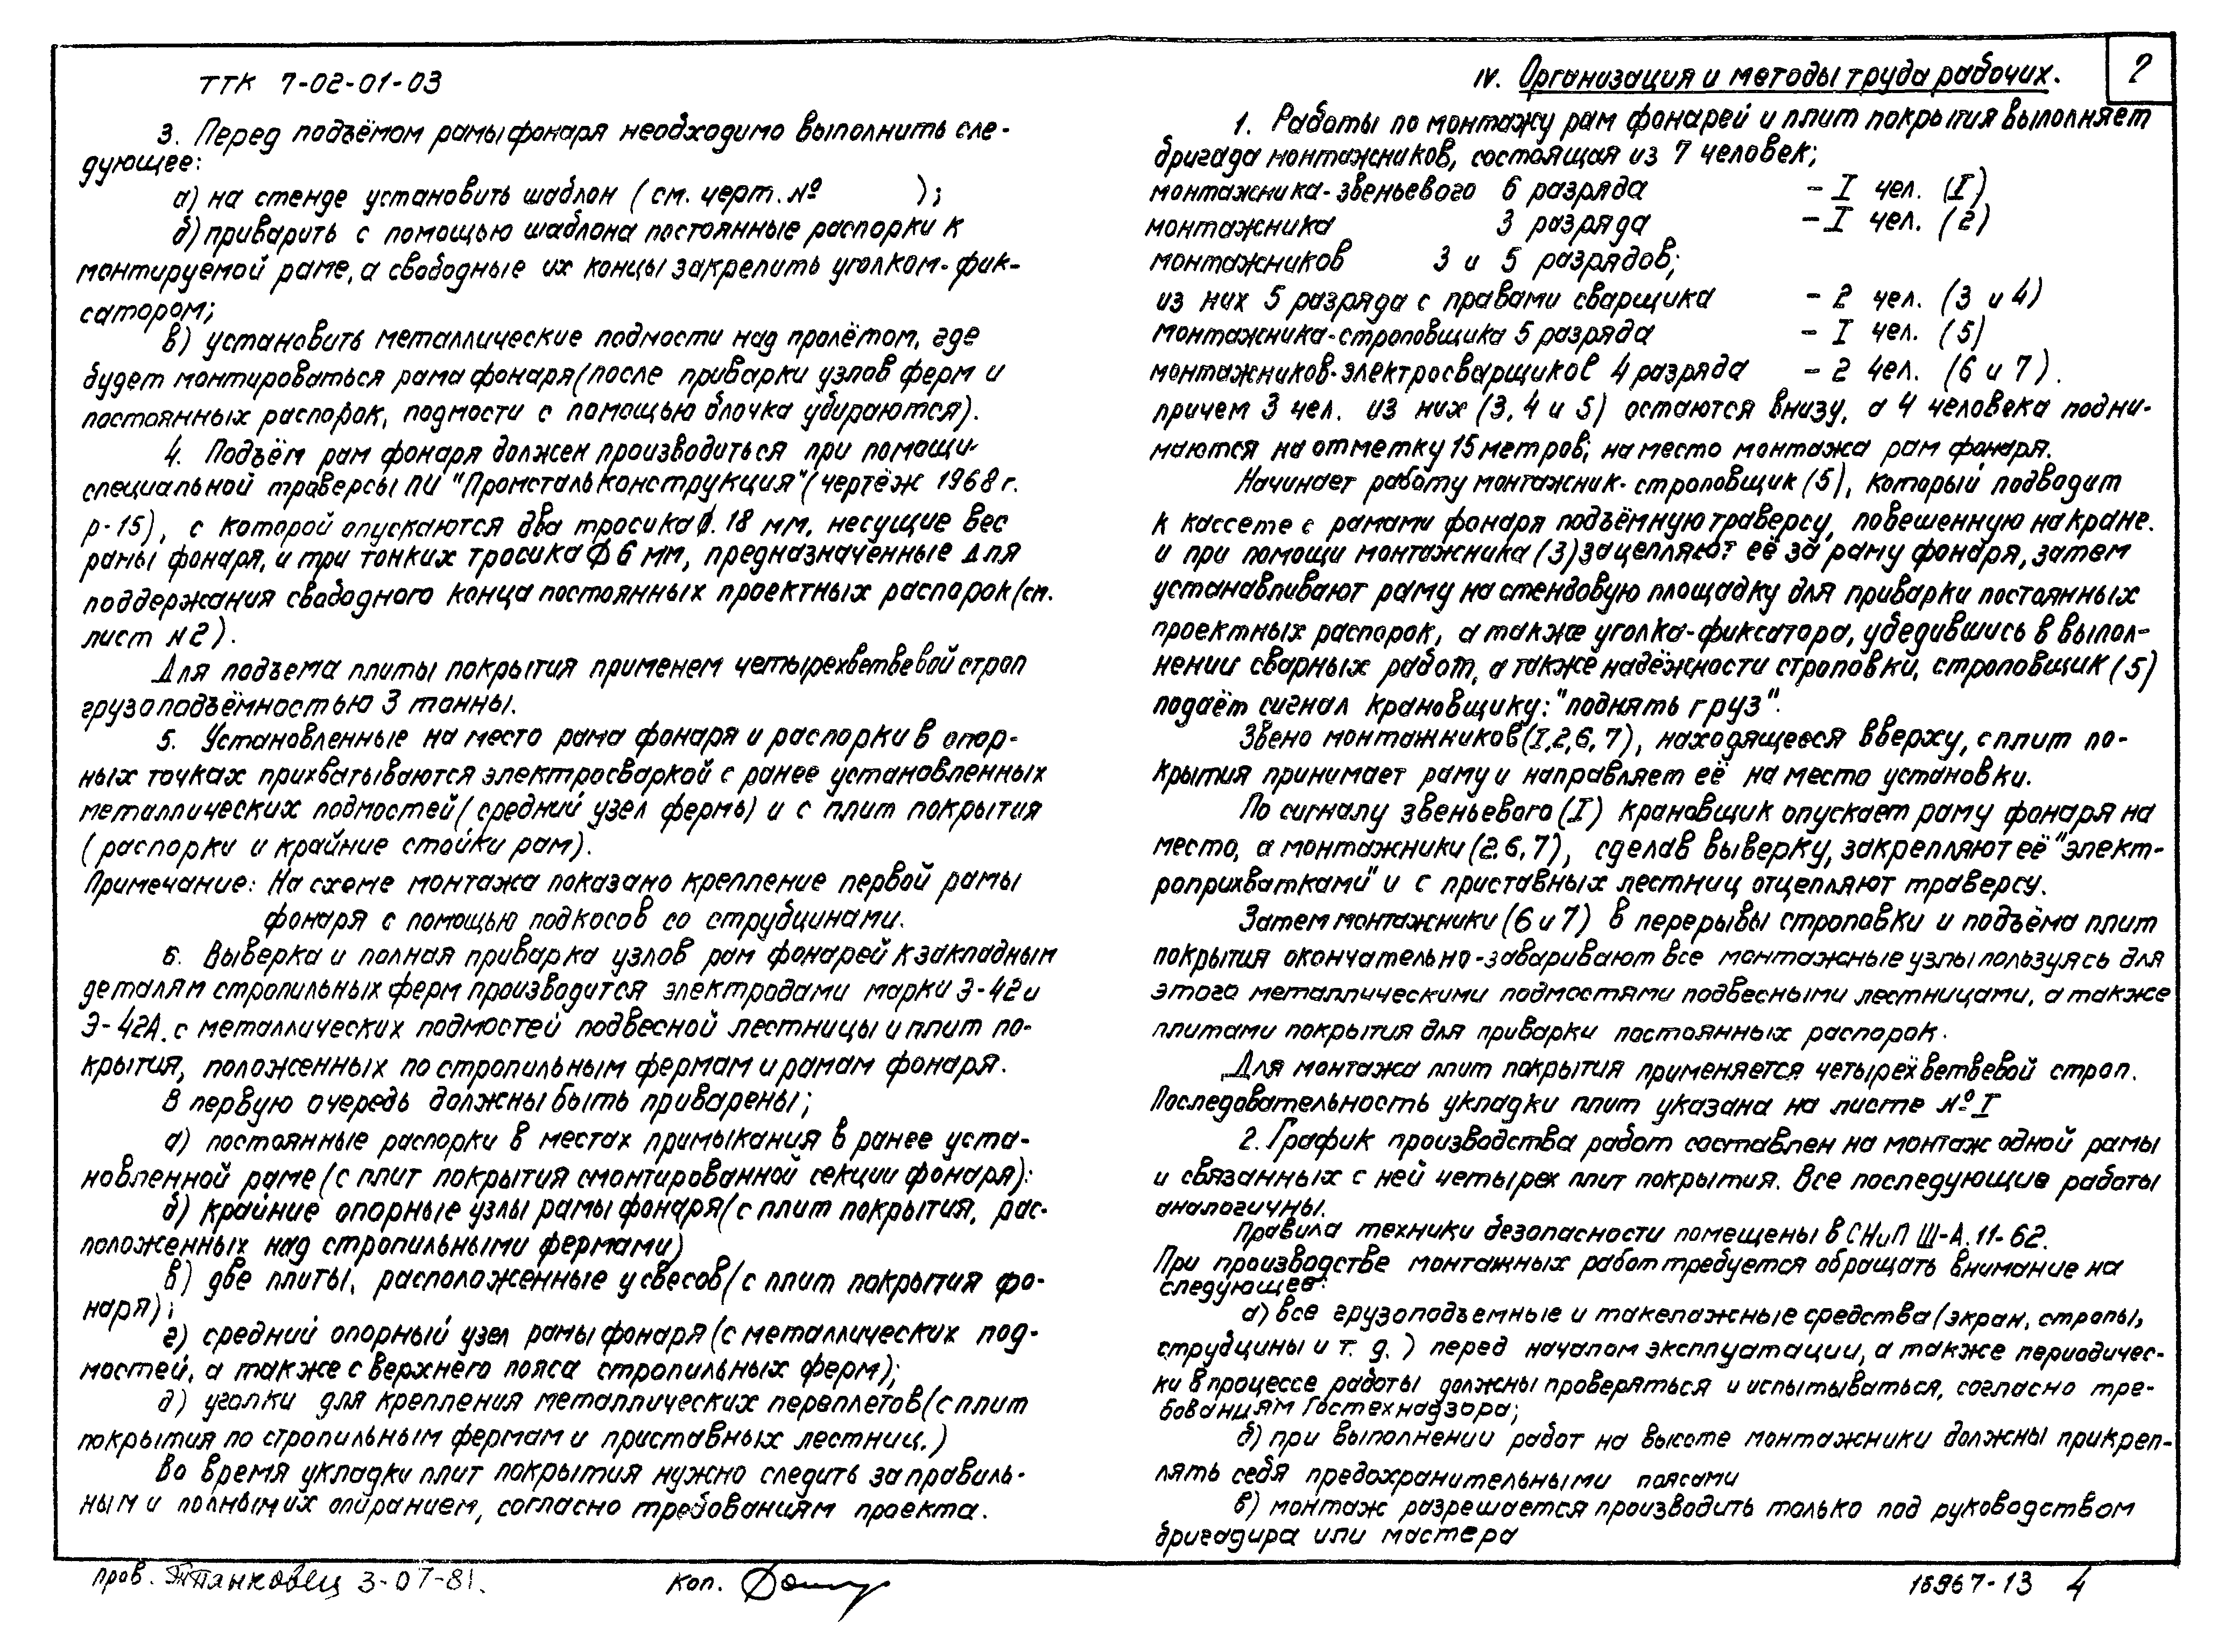 ТТК 7-02-01-03
3. Перед подъёмом рамы фонаря необходимо выполнить сле-
дующее:
а) на стенде установить шаблон (см. черт. №          );
б) приварить с помощью шаблона постоянные распорки к
монтируемой раме, а свободные их концы закрепить уголком-фик-
сатором;
в) установить металлические подмости над пролётом, где
будет монтироваться рама фонаря (после приварки узлов ферм и
постоянных распорок, подмости с помощью блочка убираются).
4. Подъём рам фонаря должен производиться при помощи
специальной траверсы ПИ "Промстальконструкция" (чертёж 1968 г.
р-15), с которой опускаются два тросика ф. 18 мм, несущие вес
рамы фонаря, и три тонких тросика ф 6 мм, предназначенные для
поддержания свободного конца постоянных проектных распорок (см.
лист №2).
Для подъема плиты покрытия применем четырехветвевой строп
грузоподъёмностью 3 тонны.
5. Установленные на место рама фонаря и распорки в опор-
ных точках прихватываются электросваркой с ранее установленных
металлических подмостей (средний узел фермы) и с плит покрытия
(распорки и крайние стойки рам).
Примечание: На схеме монтажа показано крепление первой рамы
фонаря с помощью подкосов со струбцинами.
6. Выверка и полная приварка узлов рам фонарей к закладным
деталям стропильных ферм производится электродами марки Э-42 и
Э-42А. с металлических подмостей подвесной лестницы и плит по-
крытия, положенных по стропильным фермам и рамам фонаря.
В первую очередь должны быть приварены;
а) постоянные распорки в местах примыкания в ранее уста-
новленной раме (с плит покрытия смонтированной секции фонаря):
б) крайние опорные узлы рамы фонаря (с плит покрытия, рас-
положенных над стропильными фермами)
в) две плиты, расположенные у свесов (с плит покрытия фо-
наря);
г) средний опорный узел рамы фонаря (с металлических под-
мостей, а также с верхнего пояса стропильных ферм);
д) уголки для крепления металлических переплетов (с плит
покрытия по стропильным фермам и приставных лестниц.)
Во время укладки плит покрытия нужно следить за правиль-
ным и полным их опиранием, согласно требованиям проекта.
IV. Организация и методы труда рабочих.
2
1. Работы по монтажу рам фонарей и плит покрытия выполняет
бригада монтажников, состоящая из 7 человек;
монтажника-звеньевого 6 разряда - I чел. (I)
монтажника 3 разряда - I чел. (2)
монтажников 3 и 5 разрядов;
из них 5 разряда с правами сварщика - 2 чел. (3 и 4)
монтажника-строповщика 5 разряда - I чел. (5)
монтажников-электросварщиков 4 разряда - 2 чел. (6 и 7).
причем 3 чел. из них (3, 4 и 5) остаются внизу, а 4 человека подни-
маются на отметку 15 метров; на место монтажа рам фонаря.
Начинает работу монтажник-строповщик (5), который подводит
к кассете с рамами фонаря подъёмную траверсу, повешенную на кране.
и при помощи монтажника (3) зацепляют её за раму фонаря, затем
устанавливают раму на стендовую площадку для приварки постоянных
проектных распорок, а также уголка-фиксатора, убедившись в выпол-
нении сварных работ, а также надёжности строповки, строповщик (5)
подаёт сигнал крановщику: "поднять груз".
Звено монтажников (I,2,6,7), находящееся вверху, с плит по-
крытия принимает раму и направляет её на место установки.
По сигналу звеньевого (I) крановщик опускает раму фонаря на
место, а монтажники (2.6,7), сделав выверку, закрепляют её "элект-
роприхватками" и с приставных лестниц отцепляют траверсу.
Затем монтажники (6 и 7) в перерывы строповки и подъёма плит
покрытия окончательно-заваривают все монтажные узлы пользуясь для
этого металлическими подмостями подвесными лестницами, а также
плитами покрытия для приварки постоянных распорок.
Для монтажа плит покрытия применяется четырёхветвевой строп.
Последовательность укладки плит указана на листе №I
2. График производства работ составлен на монтаж одной рамы
и связанных с ней четырех плит покрытия. Все последующие работы
аналогичны.
Правила техники безопасности помещены в СНиП Ш-А.11-62.
При производстве монтажных работ требуется обращать внимание на
следующее:
а) все грузоподъемные и такелажные средства (экран, стропы,
струбцины и т. д.) перед началом эксплуатации, а также периодичес-
ки в процессе работы должны проверяться и испытываться, согласно тре-
бованиям Гостехнадзора;
б) при выполнении работ на высоте монтажники должны прикреп-
лять себя предохранительными поясами
в) монтаж разрешается производить только под руководством
бригадира или мастера
пров. 3-07-81.
Коп.
15967-13 4